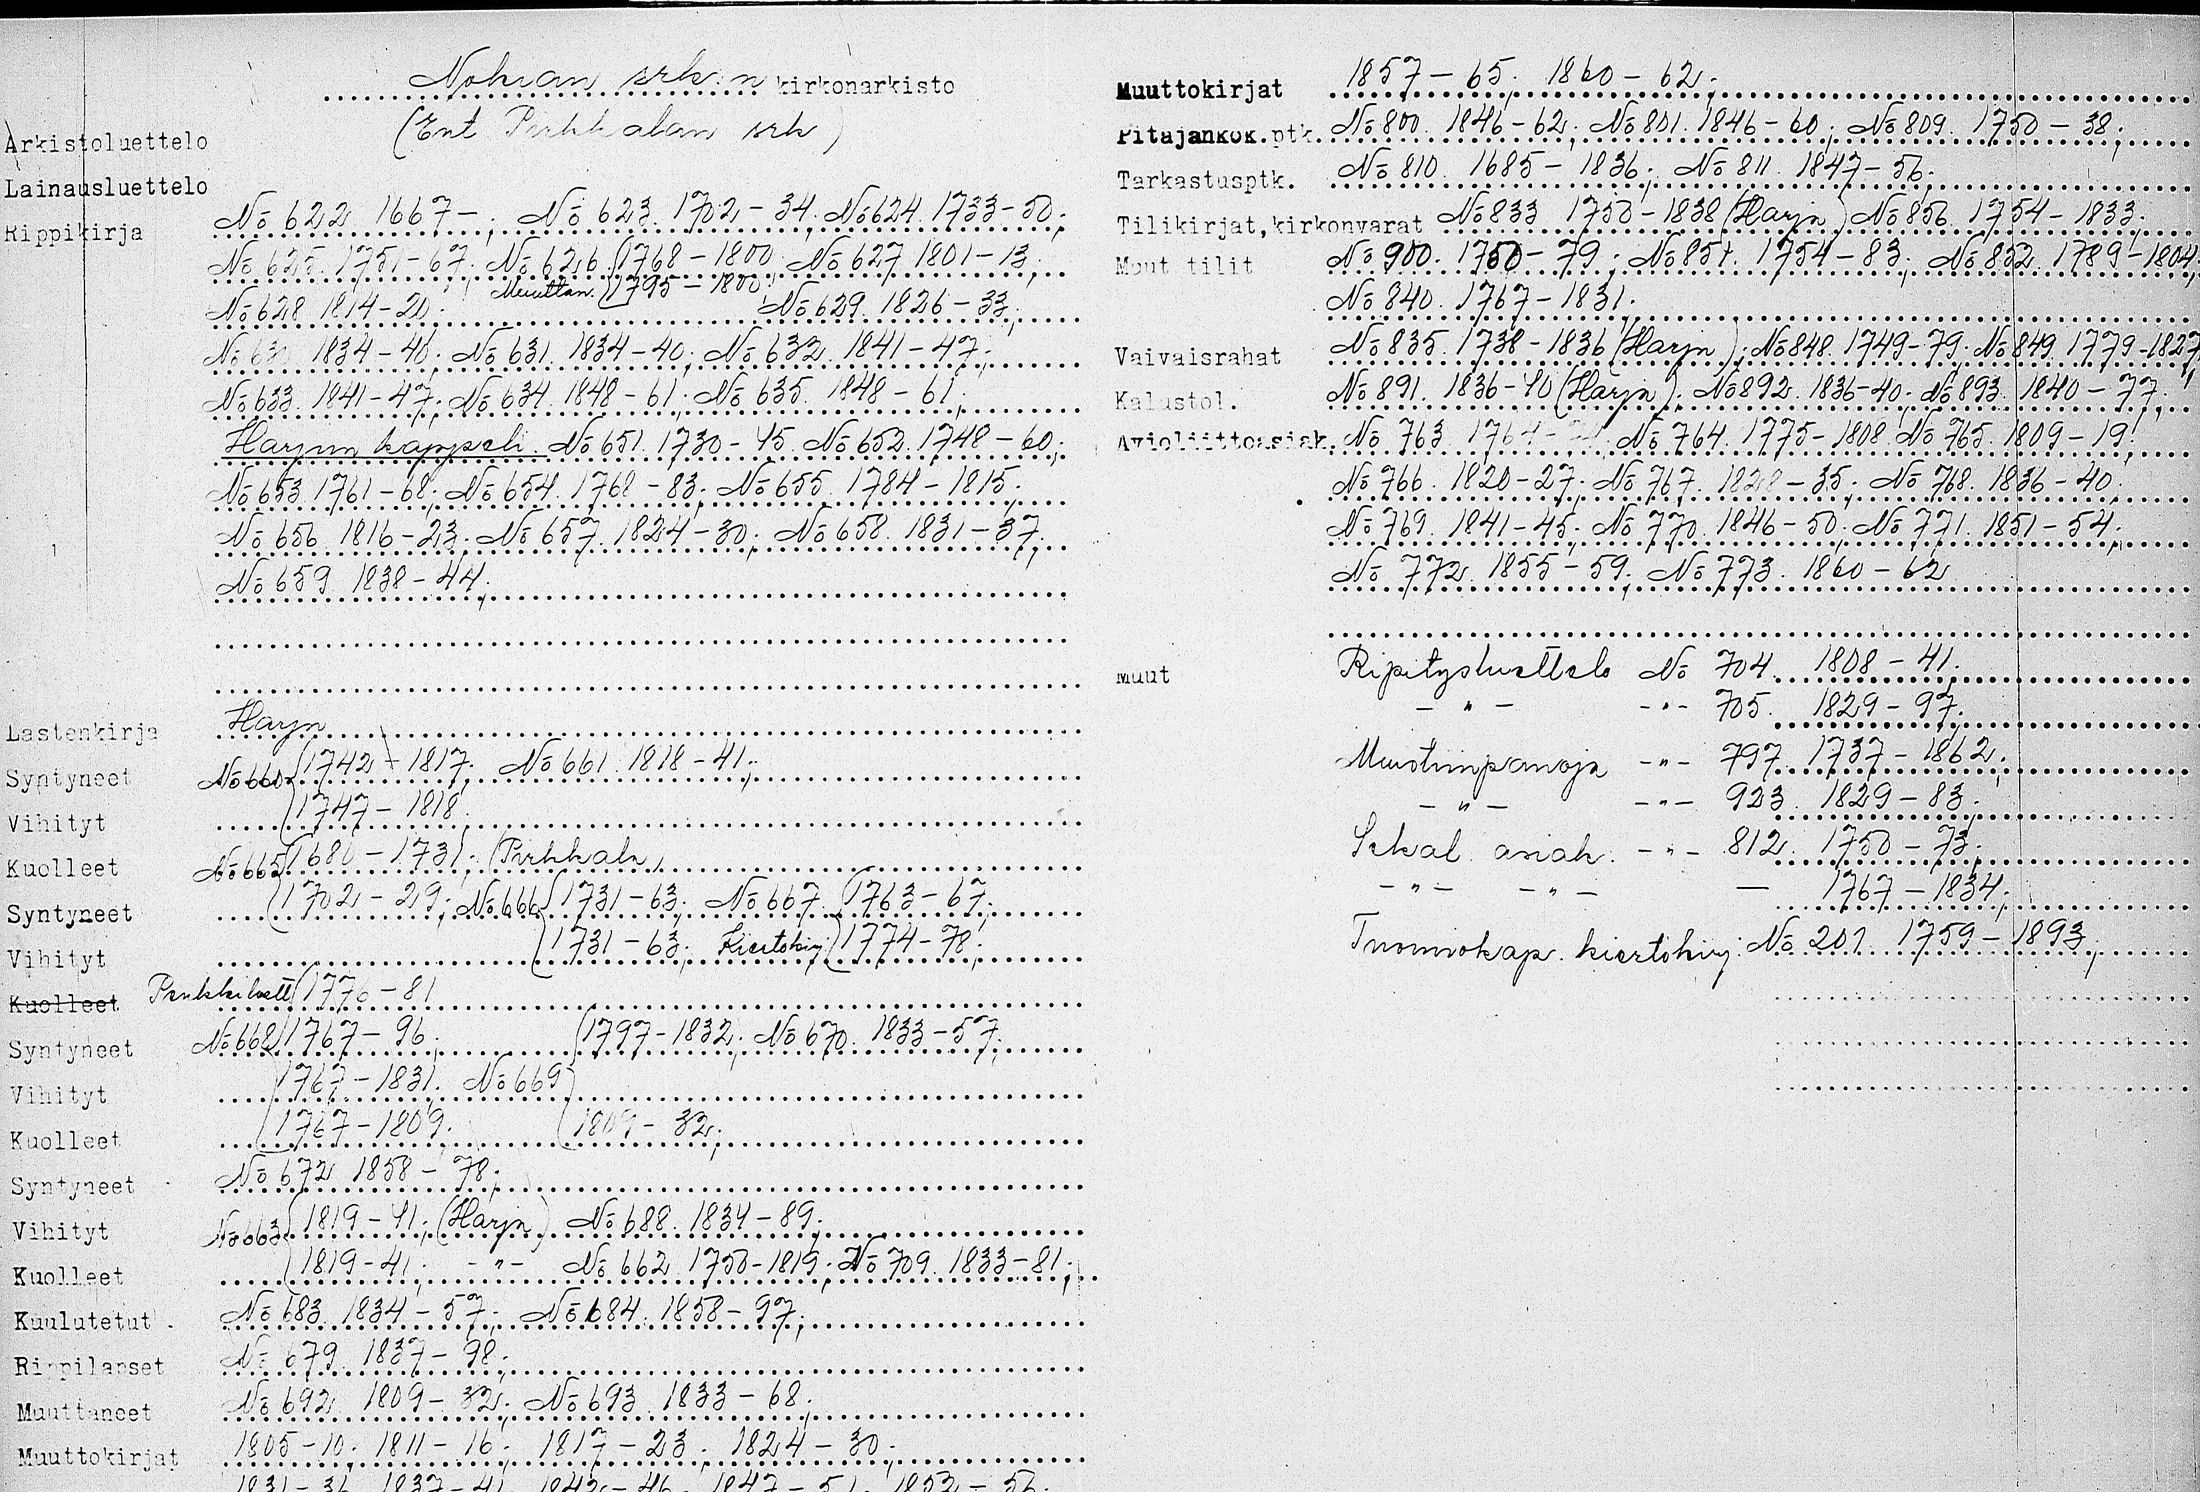 Nokian srk:n kirkonarkisto
(Ent Pirkkalan srk)
Arkistoluettelo
Lainausluettelo
Rippikirja No 622 1667-; No 623. 1702-34; No 624. 1733-50;
No 625. 1751-67; No 626. (1768-1800; No 627. 1801-13;
No 628 1814-20; Muuttan. (1795-1800; No 629. 1826-33;
1834-40; No 631. 1834-40; No 632. 1841-47;
No 633. 1841-47; No 634. 1848-61; No 635. 1848-61;
Harjun kappeli. No 651. 1730-45. No 652. 1748-60;
No 653. 1761-68; No 654. 1768-83; No 655. 1784-1815;
No 656. 1816-23; No 657. 1824-30; No 658. 1831-37;
No 659. 1838-44;
Lastenkirja Harjn
Syntyneet No 660 (1742-1817; No 661. 1818-41;
Vihityt (1747-1818.
Kuolleet No 665 (1680-1731; (Pirkkala)
Syntyneet (1702-29; No 666 (1731-63; No 667. (1763-67;
Vihityt (1731-63; Kiertokirj. (1774-78;
Kuolleet Penkkiluett. (1776-81
Syntyneet No 668 (1767-96; (1797-1832; No 670. 1833-57;
Vihityt (1767-1831. No 669
Kuolleet (1767-1809. (1809-32;
Syntyneet No 672 1858-78;
Vihityt No 663 (1819-41; (Harjn) No 688. 1834-89;
Kuolleet (1819-41; -"- No 662 1750-1819; No 709. 1833-81;
Kuulutetut. No 683. 1834-57; No 684. 1858-97;
Rippilapset No 679. 1837-98;
Muuttaneet No 692. 1809-32; No 693. 1833-68;
Muuttokirjat 1805-10; 1811-16; 1817-23; 1824-30;
1831-36. 1837-41. 1842-46. 1847-51. 1852-56.
Muuttokirjat 1857-65; 1860-62;
Pitäjänkok.ptk. No 800. 1846-62; No 801. 1846-60; No 809. 1750-38;
Tarkastusptk. No 810. 1685-1836; No 811. 1847-56;
Tilikirjat,kirkonvarat No 833 1750-1838 (Harjn) No 856. 1754-1833;
Muut tilit No 900. 1750-79; No 851. 1754-83; No 852. 1789-1804;
No 840. 1767-1831.
Vaivaisrahat No 835. 1738-1836 (Harjn); No 848. 1749-79; No 849. 1779-1827;
Kalustol. No 891. 1836-40 (Harjn); No 892. 1836-40; No 893. 1840-77;
Avioliittoasiak. No 763. No 764. 1775-1808 No 765. 1809-19;
No 766. 1820-27; No 767. 1828-35; No 768. 1836-40;
No 769. 1841-45; No 770. 1846-50; No 771. 1851-54;
No 772. 1855-59; No 773. 1860-62
Muut Ripitysluettelo No 704. 1808-41.
-"- -"- 705. 1829-97.
Muistiinpanoja -"- 797. 1737-1862;
-"- -"- 923. 1829-83.
Sekal. asiak. -"- 812. 1750-73;
-"- -"- — 1767-1834;
Tuomiokap. kiertokirj. No 201. 1759-1893;